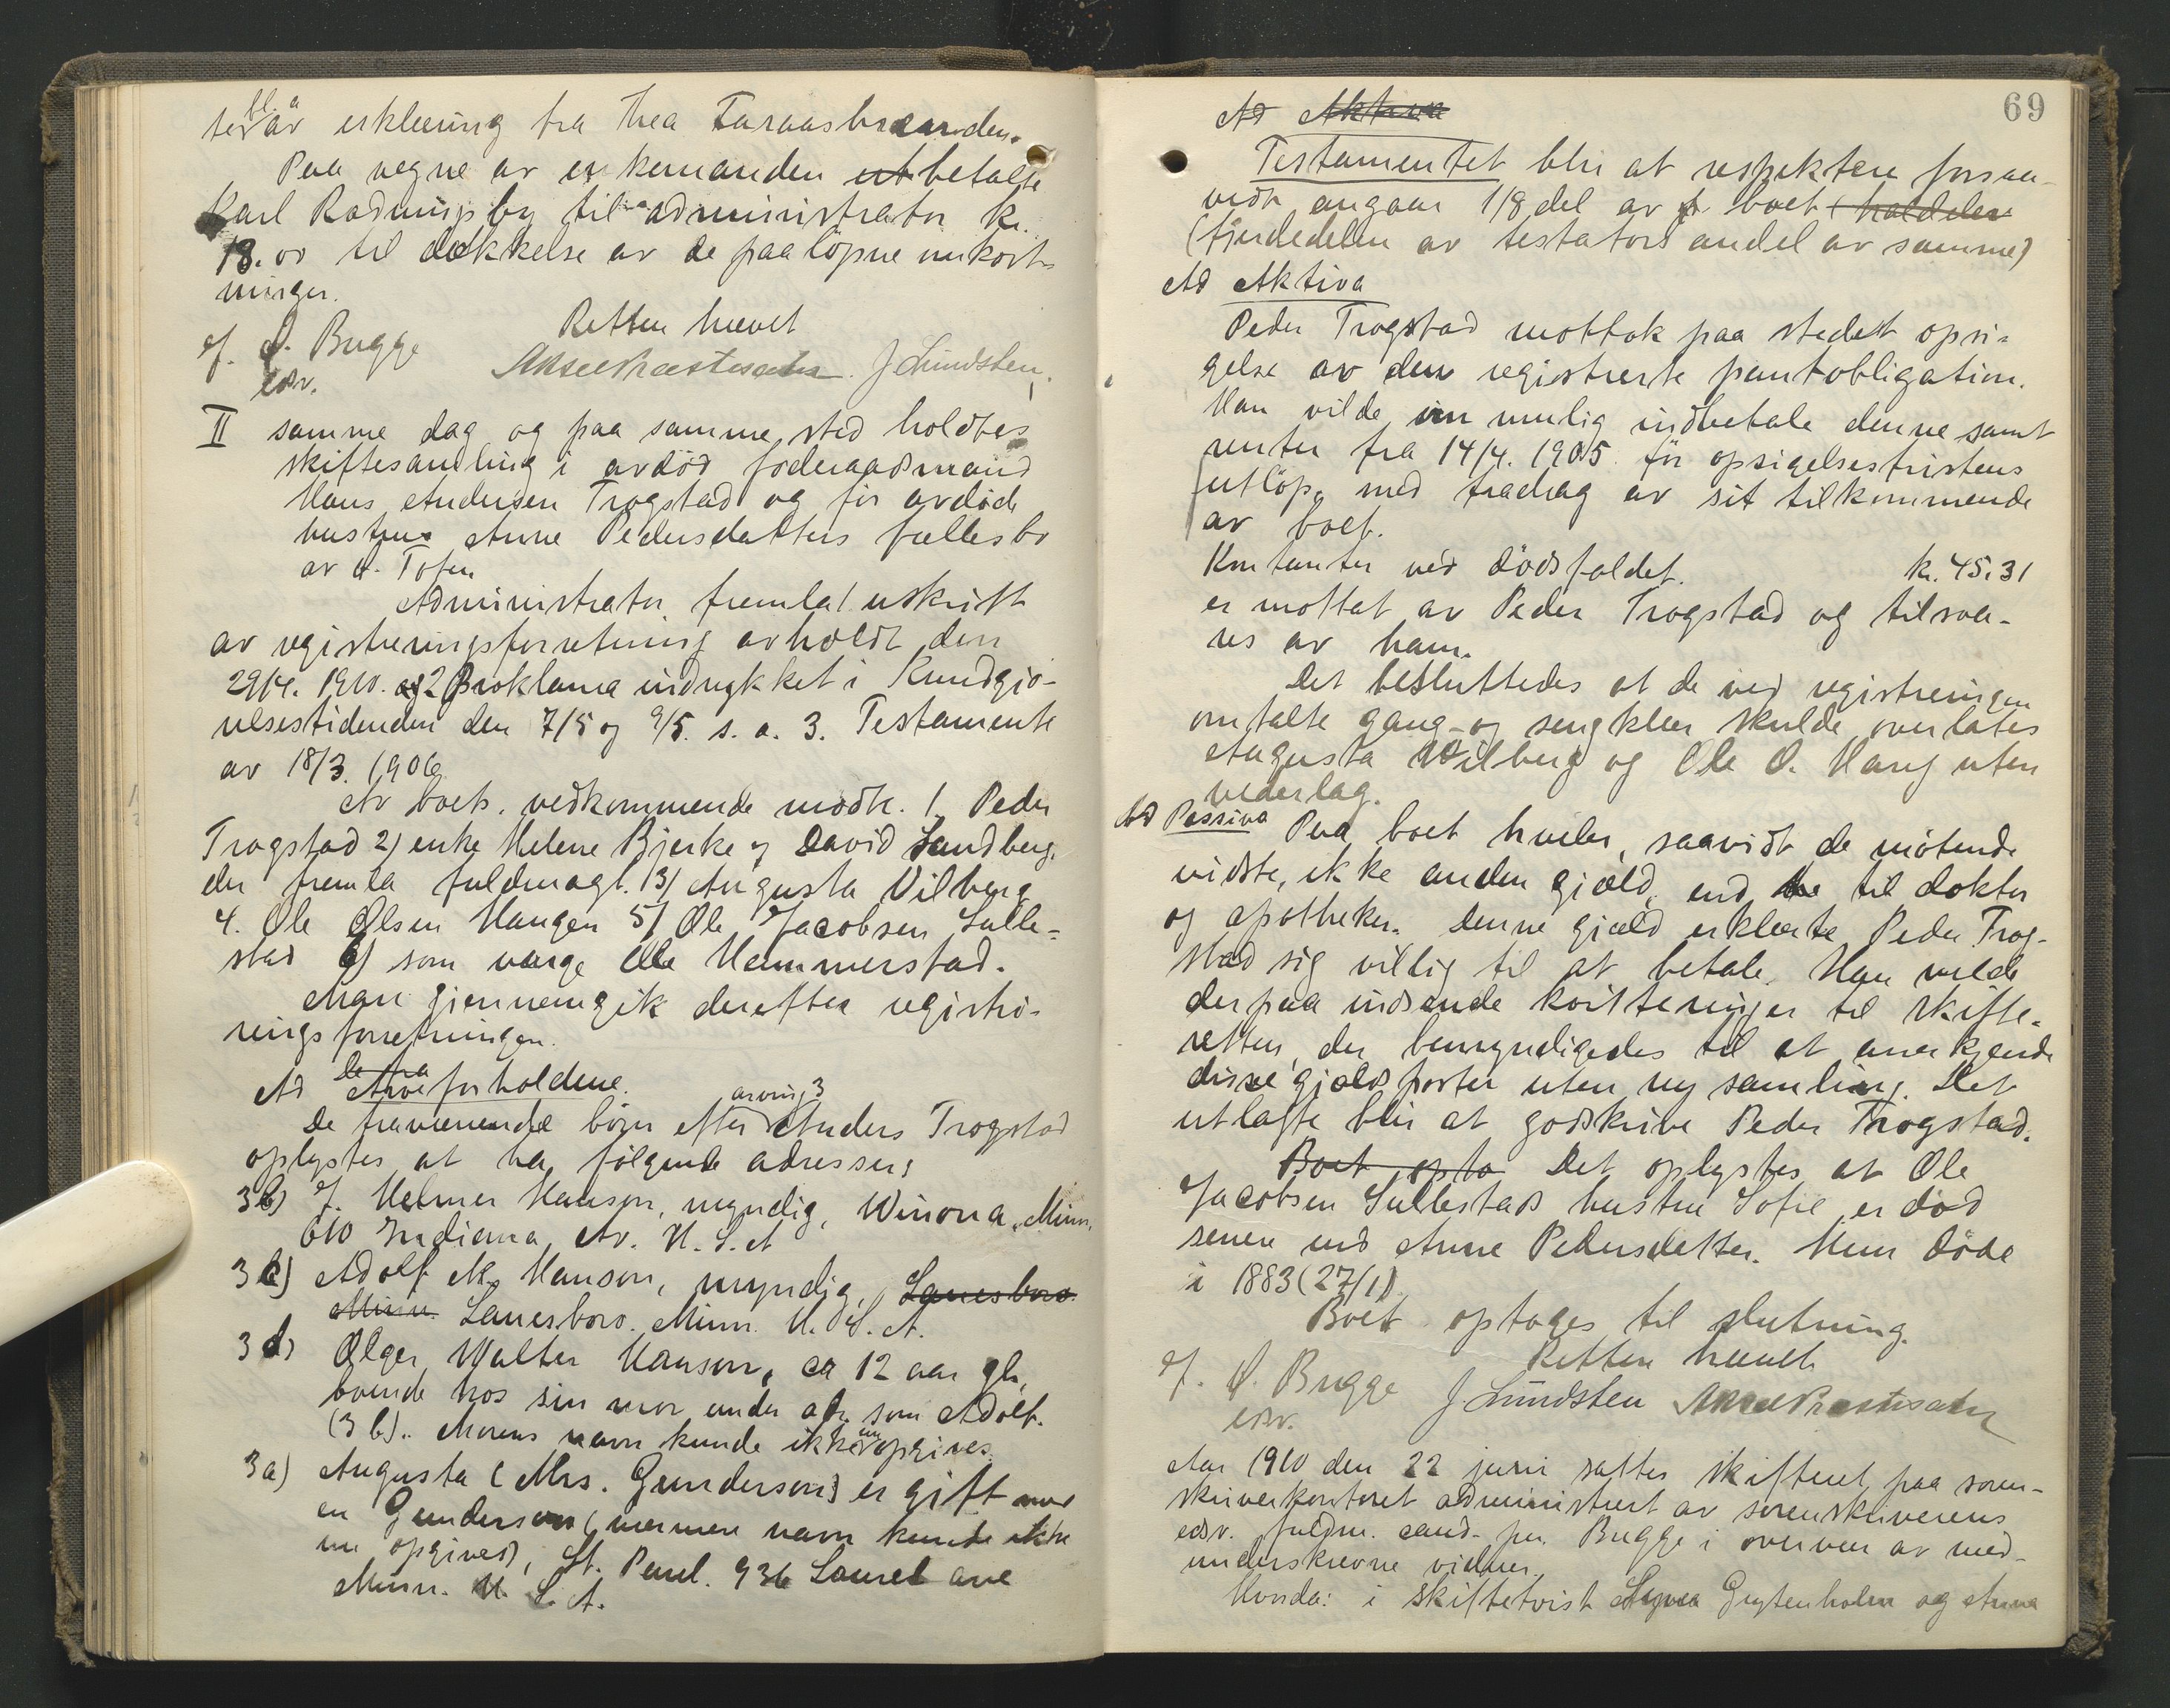 bl. a
ter är erklæring fra Thea Taraasbraaenden.
Paa vegne av enkemanden utbetalte
Karl Rødningsby til administrator kr.
18.00 til dækkelse av de paaløpne omkost-
ninger.
Retten hævet
J. O. Bugge
edsv.
J Lundsten.
II samme dag og paa samme sted holdtes
skiftesamling i avdød føderaadsmand
Hans Andersen Trogstad og før avdøde
hustru Anne Pedersdatters fællesbo
av Ø. Toten
Administrator fremla 1 utskrift
av registreringsforretning avholdt den
29/4. 1910. og 2 Proklama indrykket i Kundgjø-
relsestidenden den 7/5 og 9/5. s. a. 3. Testamente
av 18/3. 1906
Av boets vedkommende mødte. 1. Peder
Trogstad 2) enke Helene Bjerke og David Sandberg,
der fremla fuldmagt. 3) Augusta Vilberg
4. Ole Olsen Haugen 5) Ole Jacobsen Sulle-
stad 6) som værge Ole Hammerstad.
Man gjennemgik derefter registre-
ringsforretningen.
De fra
Ad Arveforholdene.
arving 3
De fraværende børn efter Anders Trogstad
oplystes at ha følgende adresser:
3b) J. Helmer Hanson, myndig, Winona, Minn.
610 Indiana Av. U. S. A
3c) Adolf M. Hanson, myndig, Lanesboro
Minn. Lanesboro. Minn. U. S. A.
3d) Olger Walter Hanson, ca 12 aar gl.,
boende hos sin mor under adr. som Adolf.
(3b). Morens navn kunde ikke nu opgives.
3a) Augusta (Mrs. Gunderson) er gift med
en Gunderson (nærmere navn kunde ikke
nu opgives), St. Paul. 936 Laurel ave
Minn. U. S. A.
69
Ad Aktiva
Testamentet blir at respektere forsaa-
vidt angaar 1/8 del av boet (halvdelen
(fjerdedelen av testators andel av samme)
Ad Aktiva
Peder Trogstad mottok paa stedet opsi-
gelse av den registrerte pantobligation.
Han vilde om mulig indbetale denne samt
renter fra 14/4. 1905 før opsigelsesfristens
utløp, med fradrag av sit tilkommende
av boet.
Kontanter ved dødsfaldet. kr. 45,31
er mottat av Peder Trogstad og tilsva-
res av ham.
Det besluttedes at de ved registreringen
omtalte gang- og sengklær skulde overlates
Augusta Wilberg og Ole O. Haug uten
vederlag.
Ad Passiva Paa boet hviler, saavidt de møtende
vidste, ikke anden gjæld, end til doktor
og apotheker. Denne gjæld erklærte Peder Trog-
stad sig villig til at betale. Han vilde
derpaa indsende kvitteringer til skifte-
retten, der bemyndigedes til at anerkjende
disse gjældsposter uten ny samling. Det
utlagte blir at godskrive Peder Trogstad.
Boet opta Det oplystes at Ole
Jacobsen Sullestads hustru Sofie er død
senere end Anne Pedersdatter. Hun døde
i 1883 (27/1)
Boet optages til slutning.
Retten hævet
J. O. Bugge
edsv.
J Lundsten
Aar 1910 den 22 juni sattes skifteret paa soren-
skriverkontoret administrert av sorenskriverens
edsv. fuldm. cand. jur. Bugge i overvær av med-
underskrevne vidner.
Hvorda: i skiftetvist Grytenholm og Anna